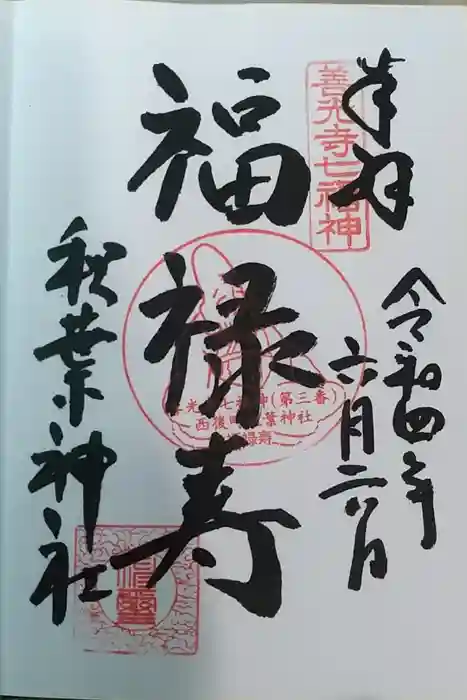 奉拝
善光寺七福神
令和四年
六月二八日
福禄寿
善光寺七福神(第三番)
西後町秋葉神社
福禄壽
秋葉神社